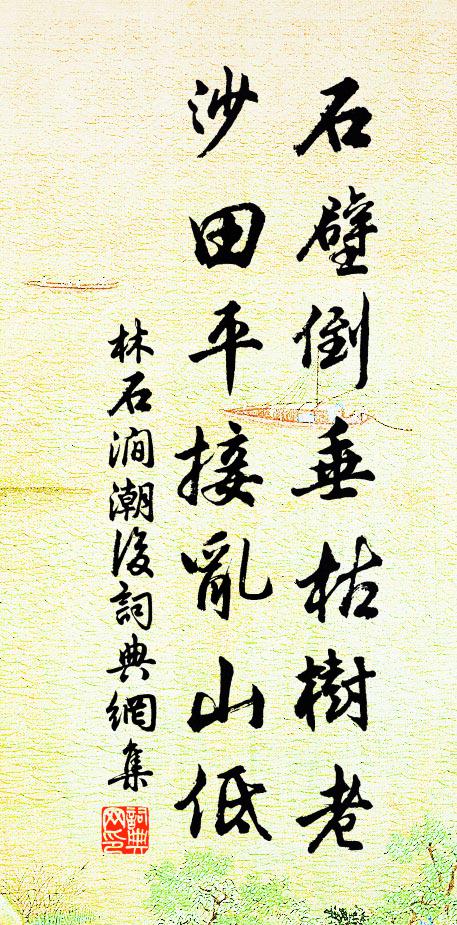 石壁倒垂枯樹老
沙田平接亂山低
林石澗潮後詞典網集
詞典網印